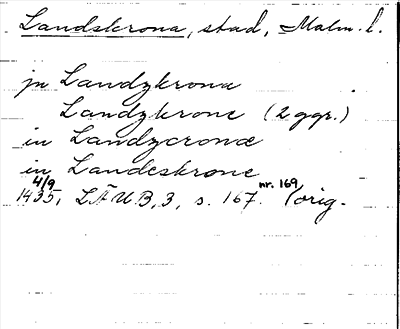 Landskrona, stad, Malm. l.
jn Landzkrona
Landzkrone (2 ggr.)
in Landzcrona
in Landeskrone
4/9 nr. 169
1435, LÄUB, 3, s. 167. (orig.